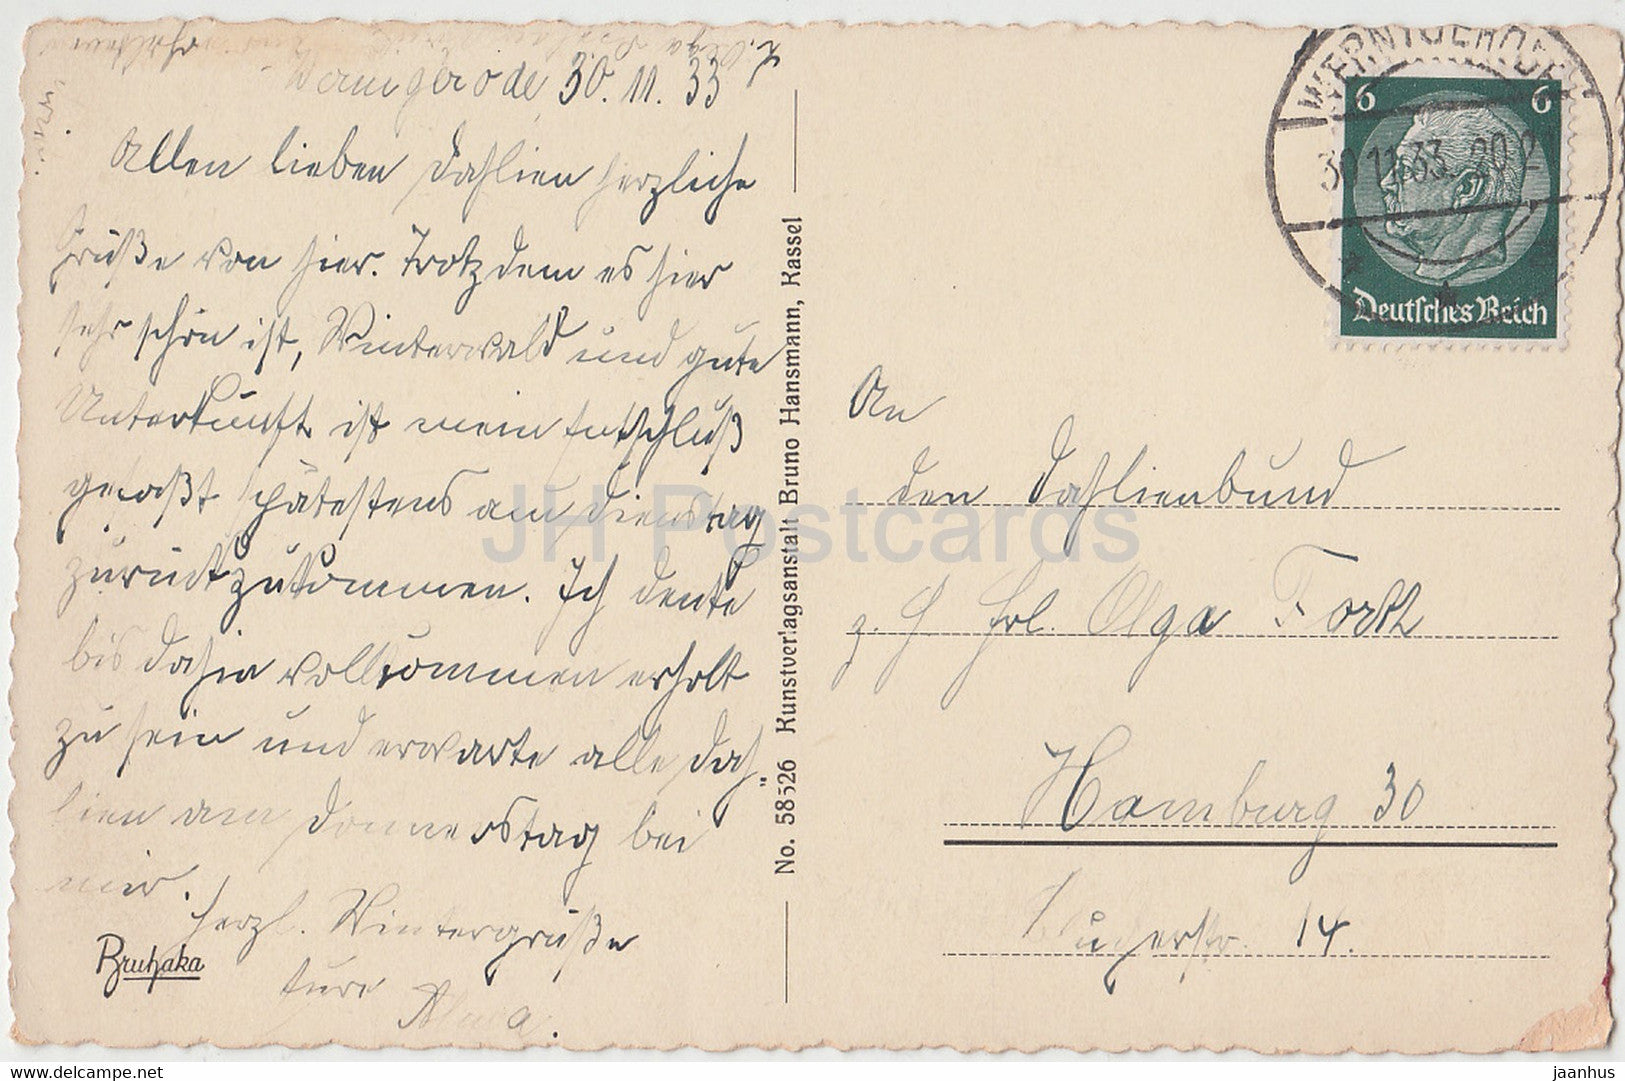 Wernigerode, 30.11.33
Allen lieben Dahlien herzliche
Grüße von hier. Trotzdem es hier
sehr schön ist, Winterwald und gute
Unterkunft ist mein Entschluß
gefaßt spätestens am Dienstag
zurückzukommen. Ich denke
bis dahin vollkommen erholt
zu sein und erwarte alle Dah-
lien am Donnerstag bei
mir.
Herzl. Wintergrüße
Eure
Bruhaka
No. 58526 Kunstverlagsanstalt Bruno Hansmann, Kassel
WERNIGERODE
30.11.33. 20
6 6
Deutsches Reich
An
den Dahlienbund
z. H Frl. Olga Forth
Hamburg 30
14.
JH Postcards
delcampe.net
jaanhus